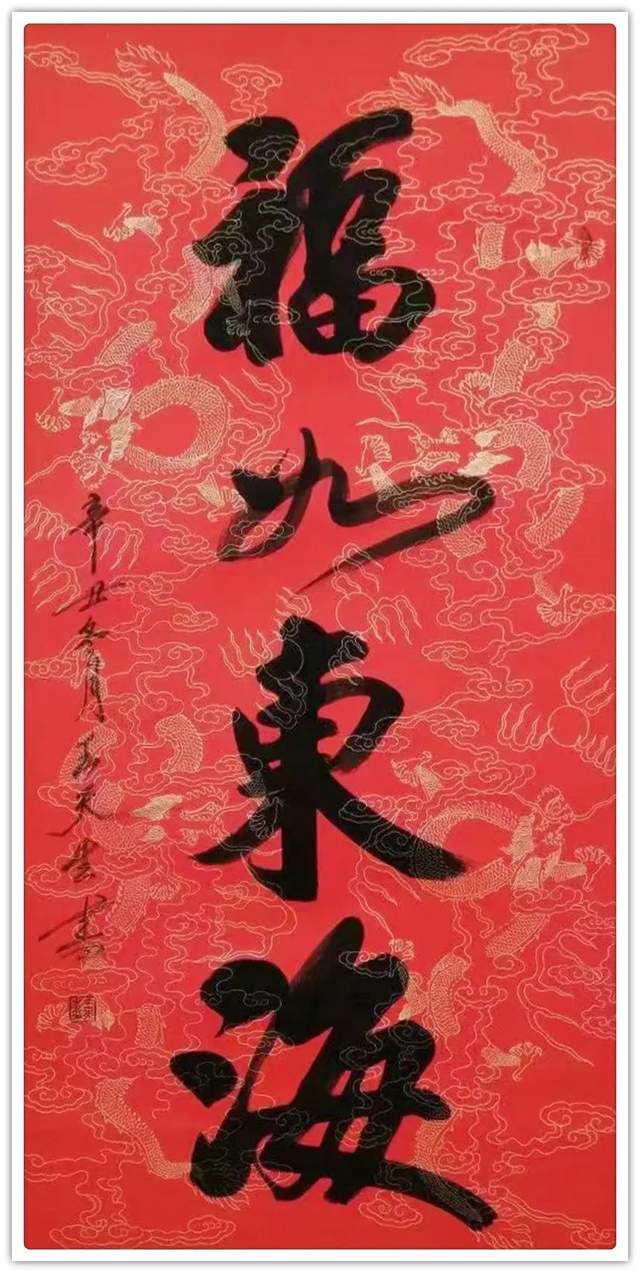 福如東海
辛丑冬月天生書